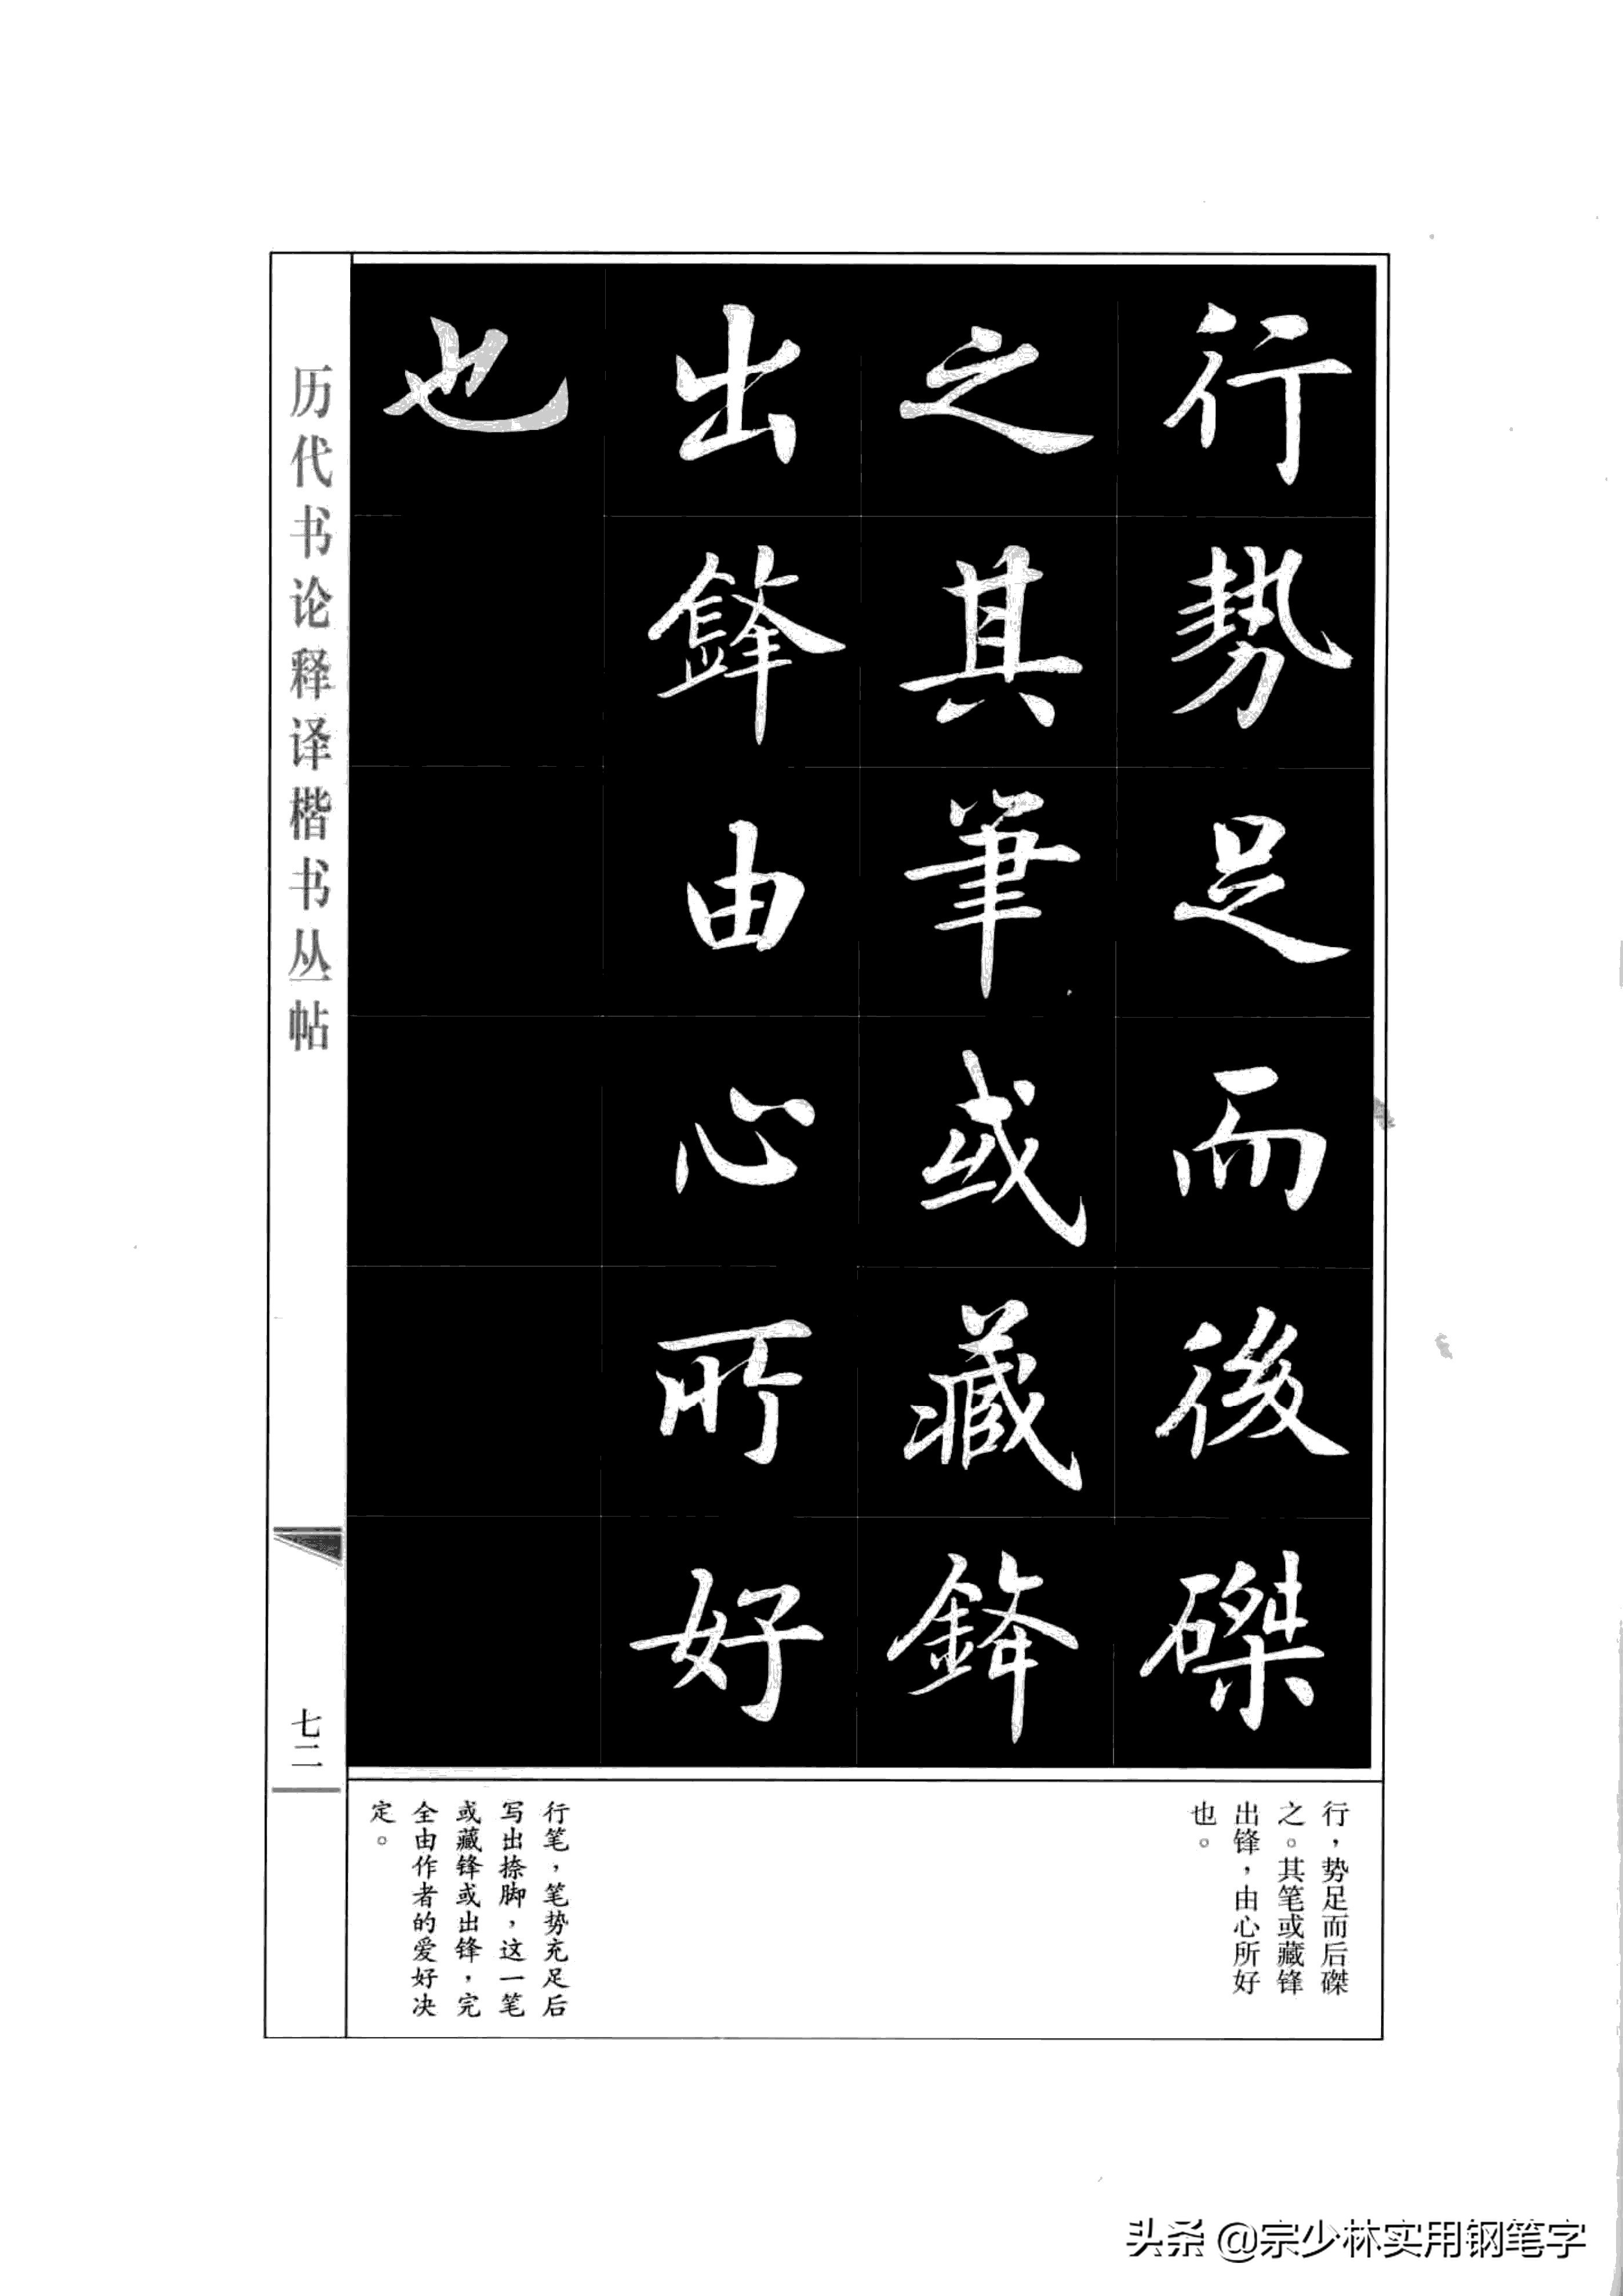 行勢足而後磔
之其筆或藏鋒
出鋒由心所好
也
历代书论释译楷书丛帖
七二
行，势足而后磔
之。其笔或藏锋
出锋，由心所好
也。
行笔，笔势充足后
写出捺脚，这一笔
或藏锋或出锋，完
全由作者的爱好决
定。
头条 @宗少林实用钢笔字